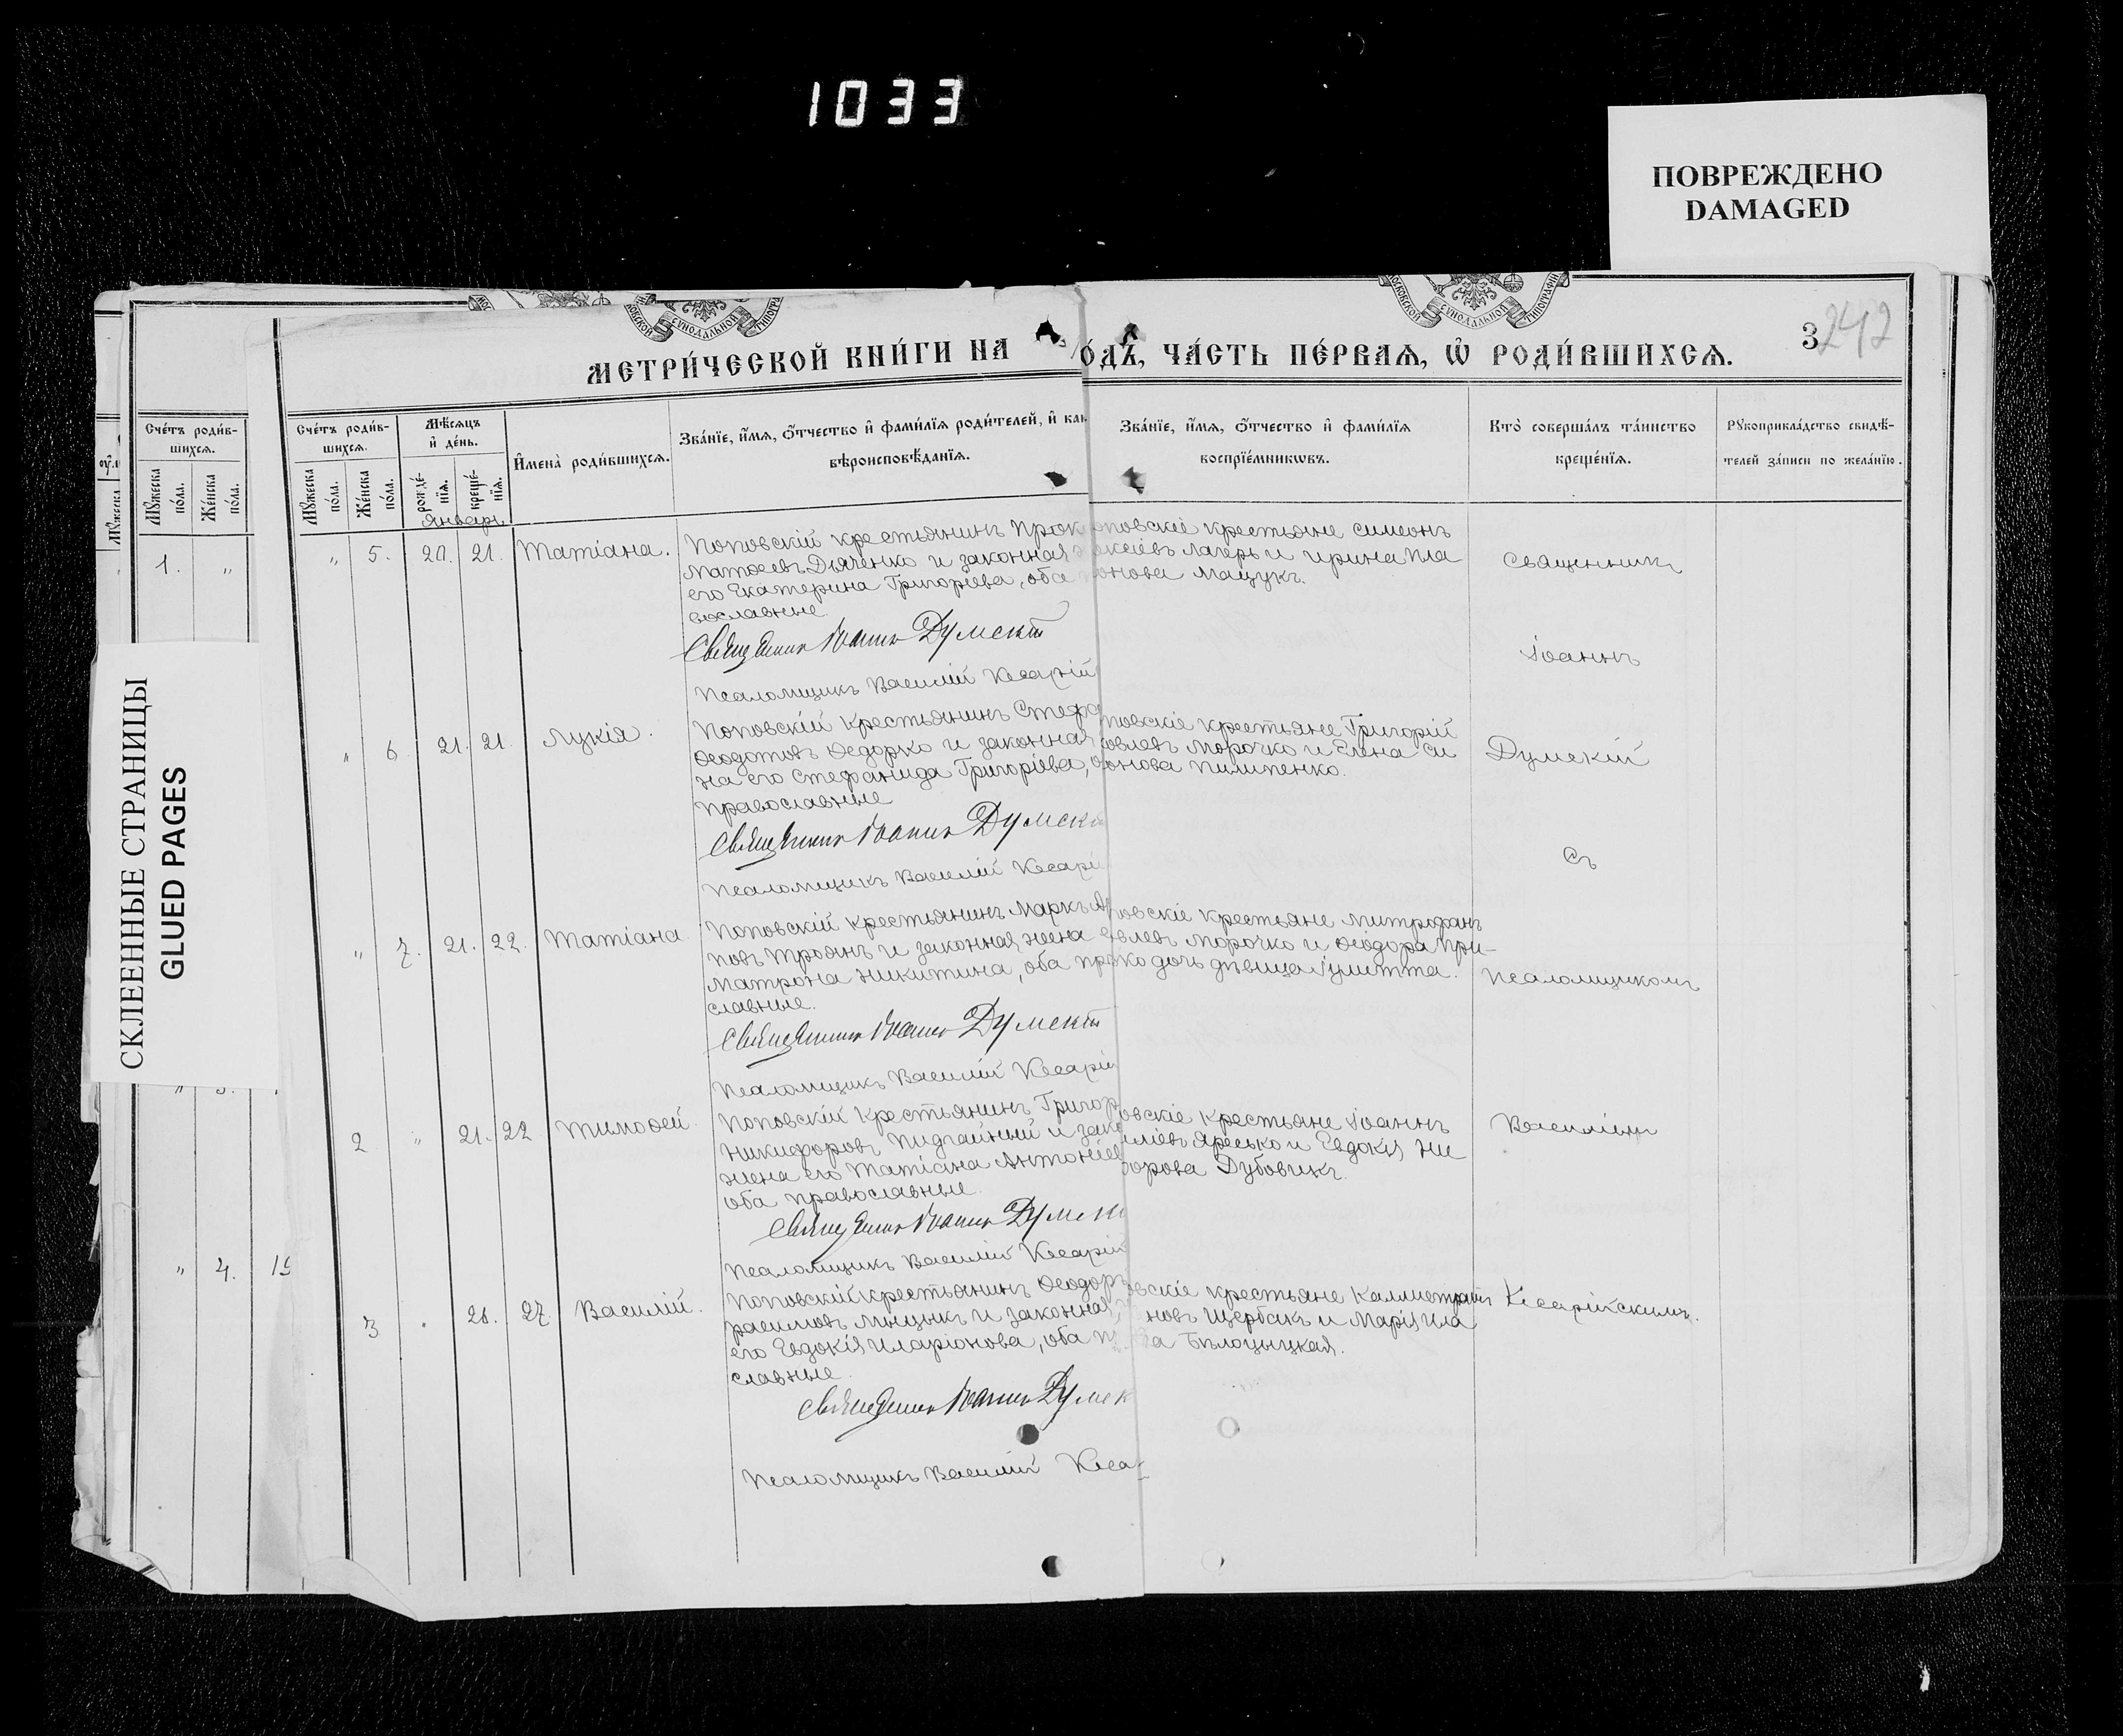 1033
ПОВРЕЖДЕНО
DAMAGED
СКЛЕЕННЫЕ СТРАНИЦЫ
GLUED PAGES
МОСКОВСКОЙ СУНОДАЛЬНОЙ ТИПОГРАФІИ
3
242
МЕТРИ́ЧЕСКОЙ КНИ́ГИ НА
О́ДЪ, ЧА́СТЬ ПЕ́РВАѦ, Ѡ҆ РОДИ́ВШИХСѦ.
Счéтъ роди́в-
шихсѧ.
Мꙋ́жеска по́ла.
Же́нска по́ла.
1. „
„ 4. 15
Счéтъ роди́в-
шихсѧ.
Мꙋ́жеска по́ла.
Же́нска по́ла.
Мѣ́сѧцъ
и҆ де́нь.
рожде́-
нїѧ.
креще́-
нїѧ.
И҆мена̀ роди́вшихсѧ.
Зва́нїе, и҆́мѧ, ѻ҆́тчество и҆ фами́лїѧ роди́телей, и҆ как
вѣроисповѣ́данїѧ.
Зва́нїе, и҆́мѧ, ѻ҆́тчество и҆ фами́лїѧ
воспрїе́мникѡвъ.
Кто̀ соверша́лъ та́инство
креще́нїѧ.
Рꙋкоприкла́дство свидѣ́-
телей за́писи по жела́нїю.
Январь
„ 5. 20. 21. Татіана.
Поповскій крестьянинъ Прок
Матѳеевъ Дяченко и законная
его Екатерина Григоріева, оба
вославные.
Священникъ Іоаннъ Думскій
Псаломщикъ Василій Кесарій
повскіе крестьяне Симеонъ
ксеіевъ Лагерь и Ирина Пла
онова Мацукъ.
Священникъ
Іоаннъ
„ 6. 21. 21. Лукія.
Поповскій крестьянинъ Стефа
Ѳеодотовъ Ѳедорко и законная
на его Стефанида Григоріева,
православные
Священникъ Іоаннъ Думскі
Псаломщикъ Василій Кесарі
повскіе крестьяне Григорій
овлевъ Морочко и Елена Си
онова Пилипенко.
Думскій
Съ
„ 7. 21. 22. Татіана
Поповскій крестьянинъ Маркъ
повъ Троянъ и законная жена
Матрона Никитина, оба пра
славные.
Священникъ Іоаннъ Думскій
Псаломщикъ Василій Кесарій
повскіе крестьяне Митрофанъ
овлевъ Морочко и Ѳеодора При-
ко дочь дѣвица
Псаломщикомъ
2 „ 21. 22 Тимоѳей.
Поповскій крестьянинъ Григор
Никифоровъ Пидгайный и зако
жена его Татіана Антоніев
оба православные.
Священникъ Іоаннъ Думск
Псаломщикъ Василій Кесарій
овскіе крестьяне Іоаннъ
иліевъ Яресько и Евдокія Ни
форова Дубовикъ.
Василіемъ
3 . 26. 27. Василій.
Поповскій крестьянинъ Ѳеодоръ
расимовъ и законная
его Евдокія Иларіонова, оба п
славные.
Священникъ Іоаннъ Думск
Псаломщикъ Василій Кеса
овскіе крестьяне Каллистратъ
новъ Щербакъ и Марія Ила
ва Бѣлоцыцкая.
Кесарійскимъ.